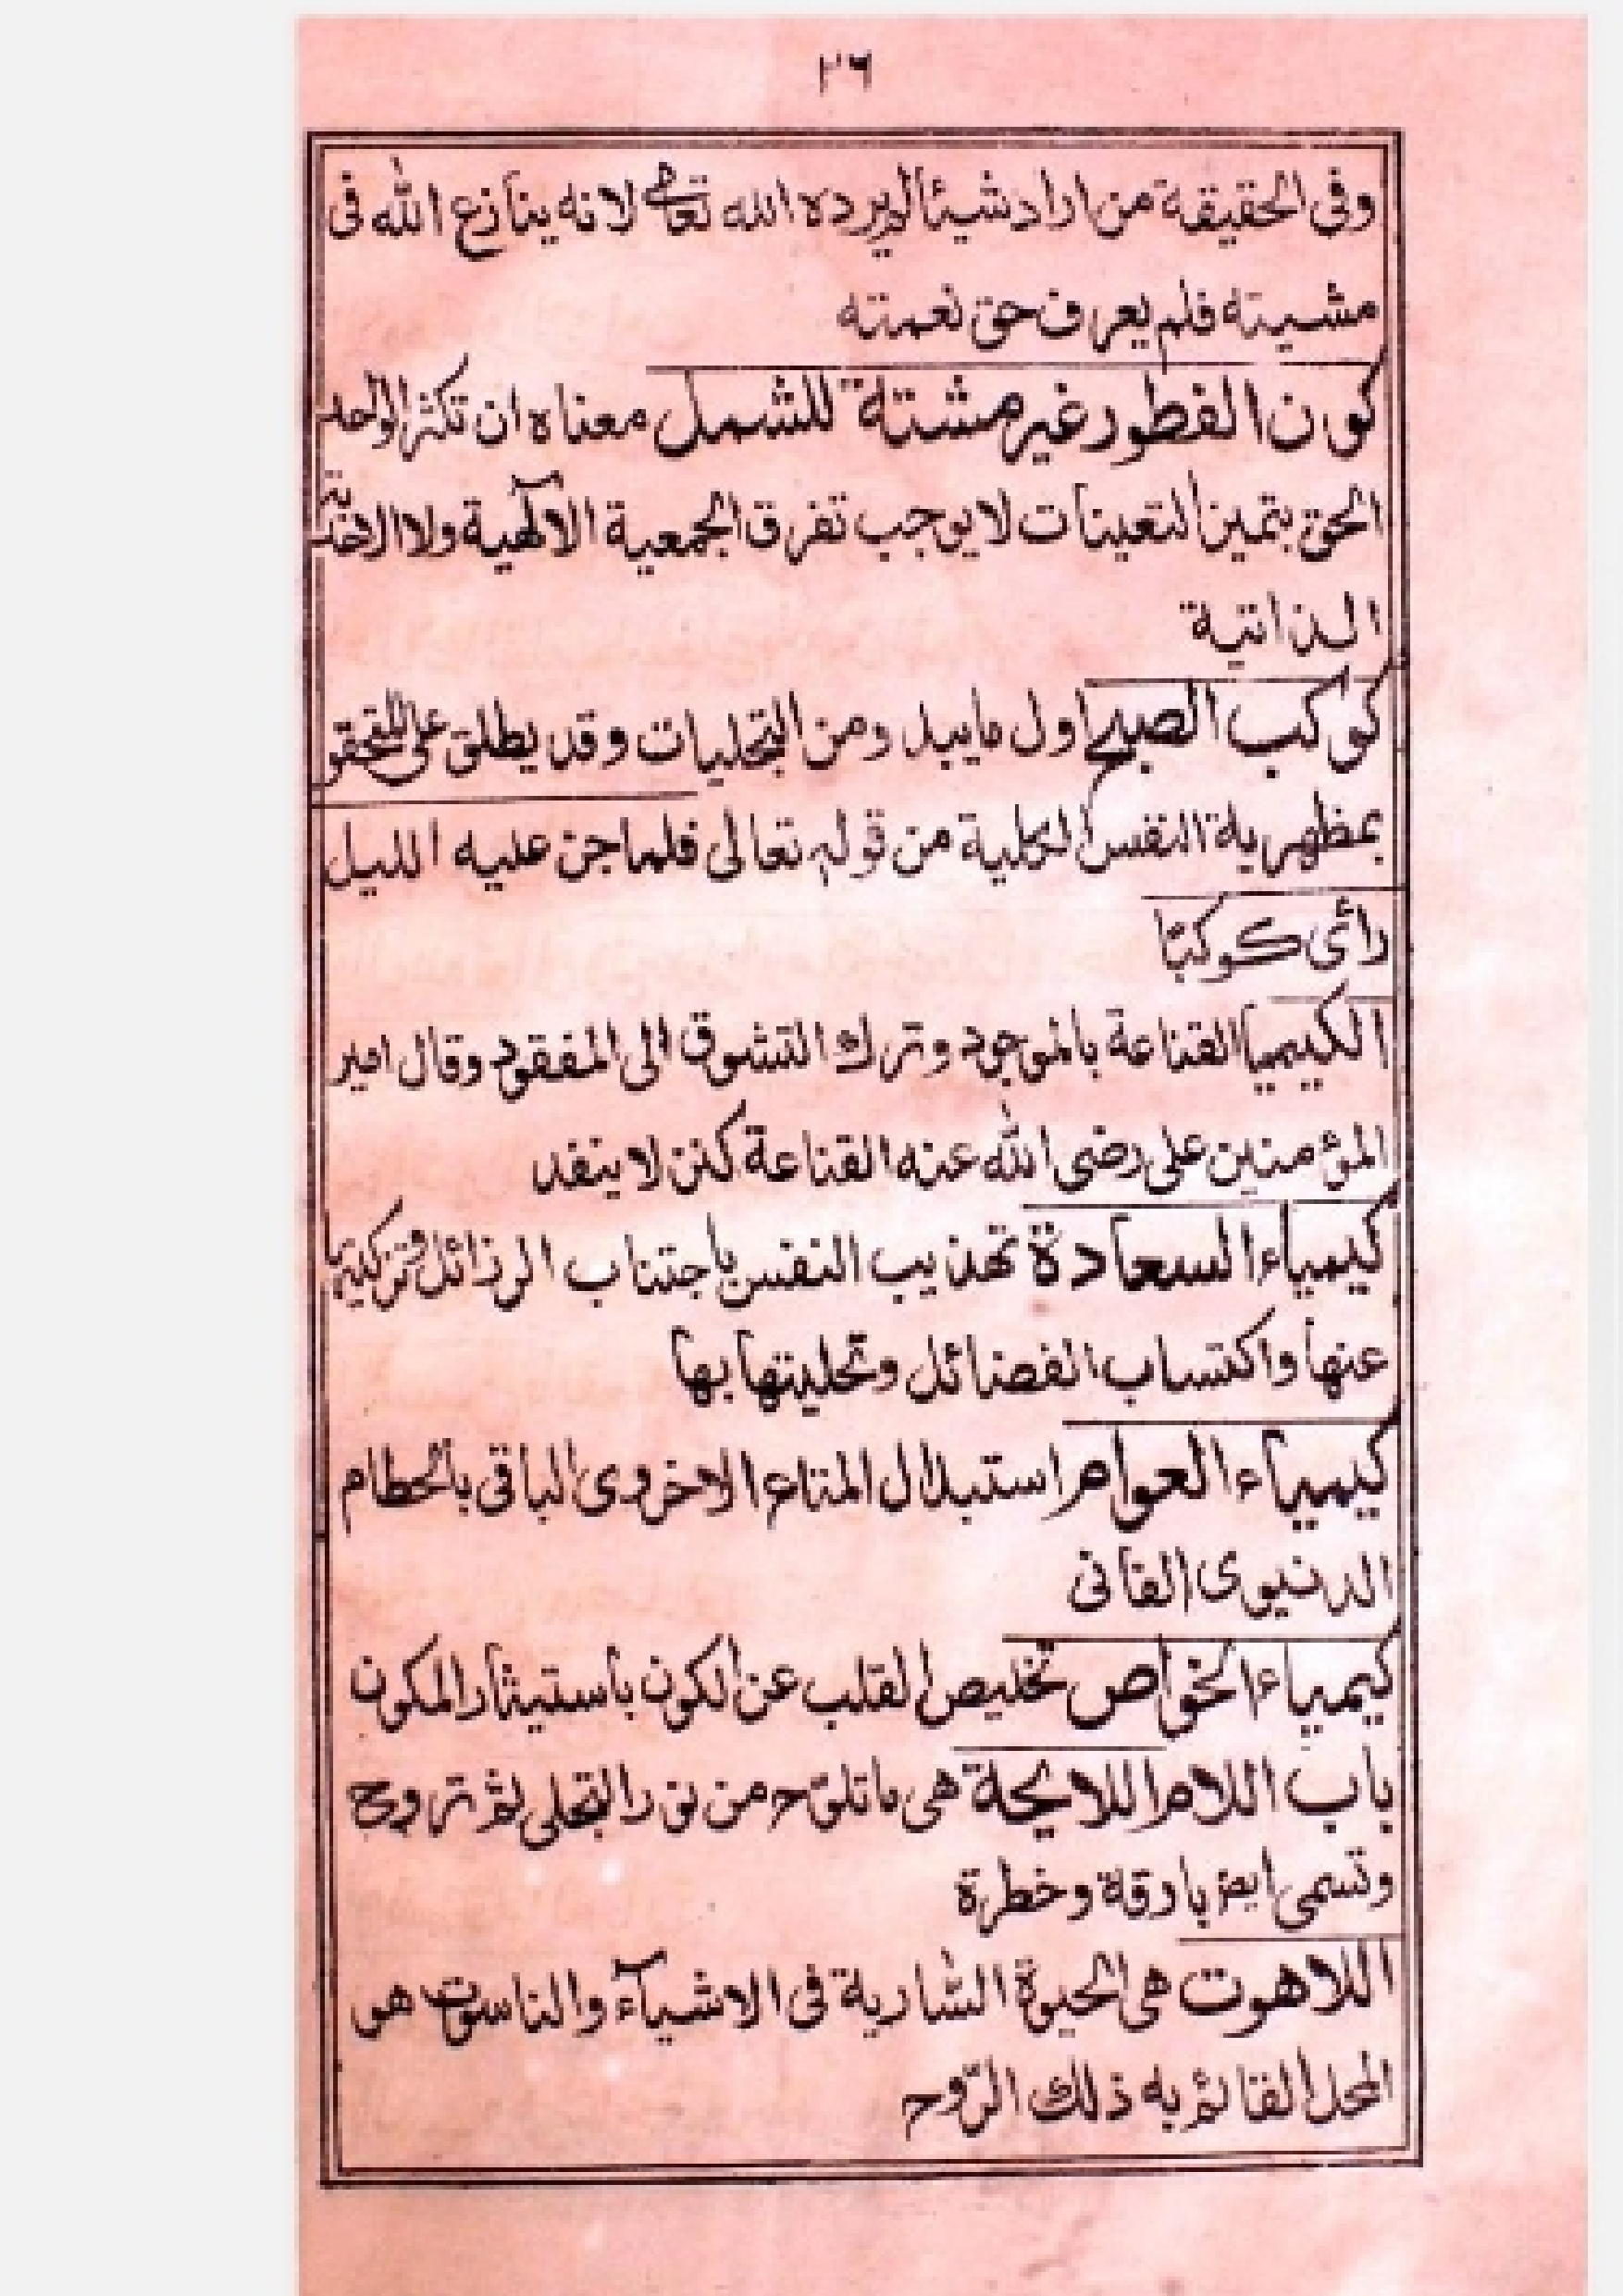 ٢٦
وفى الحقيقة من اراد شيئا لم يرده الله تعالى لانه ينازع الله فى
مشيته فلم يعرف حق نعمته
كون الفطور غير مشتة للشمل معناه ان تكثر الواحد
الحق بتميز التعينات لا يوجب تفرق الجمعية الالٓهية ولا الاحدية
الذاتية
كوكب الصبح اول ما يبدو من التجليات وقد يطلق على المتحقق
بمظهرية النفس الكلية من قوله تعالى فلما جن عليه الليل
رأى كوكبًا
الكيميا القناعة بالموجود وترك التشوق الى المفقود وقال امير
المؤمنين على رضى الله عنه القناعة كنز لا ينفد
كيمياء السعادة تهذيب النفس باجتناب الرذائل وتزكيتها
عنها واكتساب الفضائل وتحليتها بها
كيمياء العوام استبدال المتاع الاخروى الباقى بالحطام
الدنيوى الفانى
كيمياء الخواص تخليص القلب عن الكون باستيثار المكون
باب اللام اللايحة هى ما تلوّح من نور التجلى ثم تروح
وتسمى ايض بارقة وخطرة
اللاهوت هى الحيوة السّارية فى الاشيآء والناسوت هو
المحل القائم به ذلك الرّوح